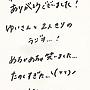 ありがとうございました！
ゆいさんと2人きりの
ラジオ…！
めちゃめちゃ笑いました…
たのしすぎた…!(TT)♪